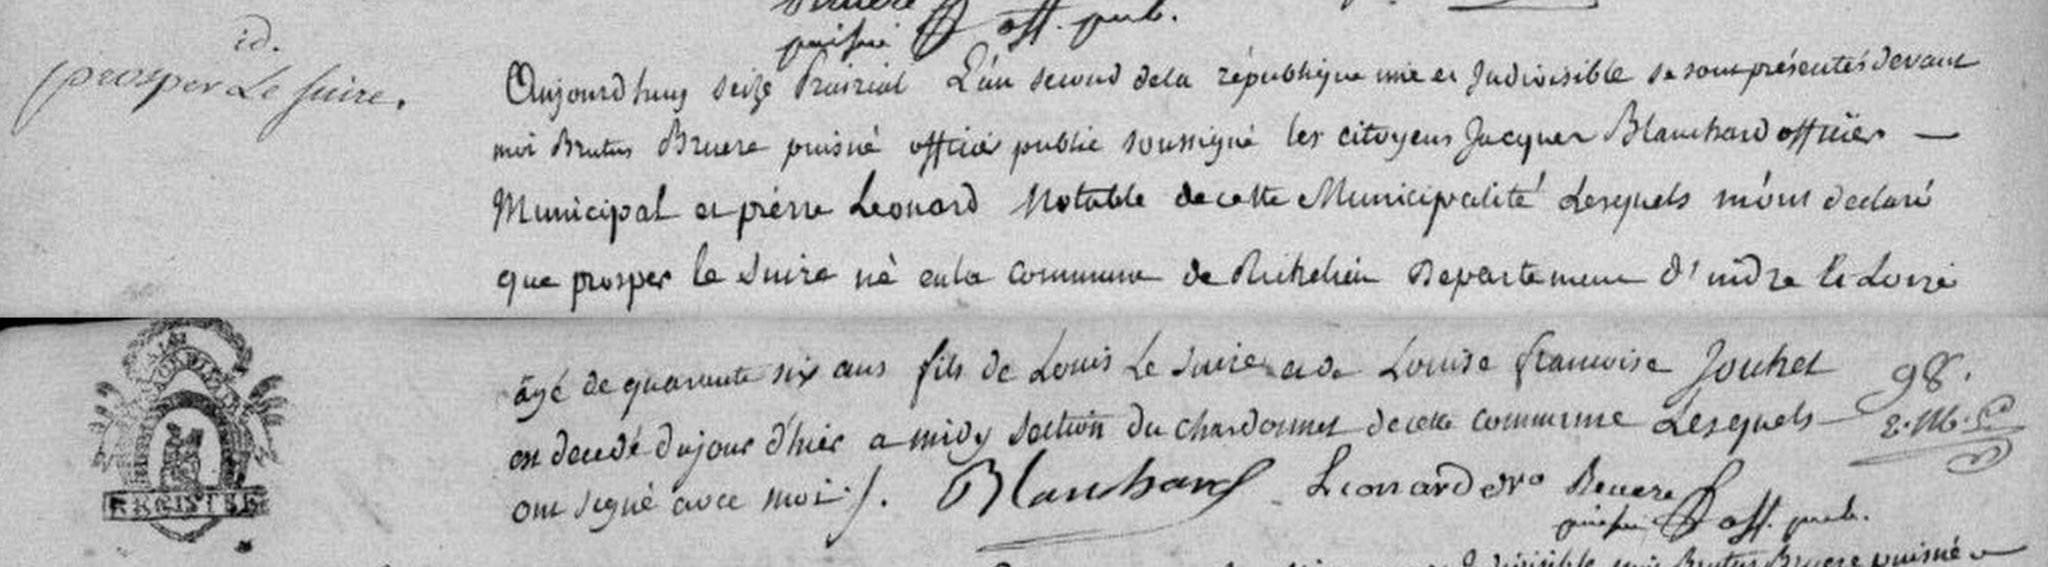 puisné off. pub.
id.
prosper Le suire.
Aujourdhuy seize Prairial L'an second dela république une et Indivisible se sont présentés devant
moi Brutus Bruere puisné officier public soussigné les citoyens Jacques Blanchard officier
Municipal et pierre Leonard Notable de cette Municipalité Lesquels m'ont declaré
que prosper le suire né en la commune de Richelieu Departement d'indre et Loire
âgé de quarante six ans fils de Louis Le suire et de Louise francoise Jouhet
est decedé du jour d'hier a midy section du chardonnet de cette commune Lesquels
98.
ont signé avec moi /. Blanchard Leonard Bruere
puisné off. pub.
REGISTRE
Indivisible moi Brutus Bruere puisné